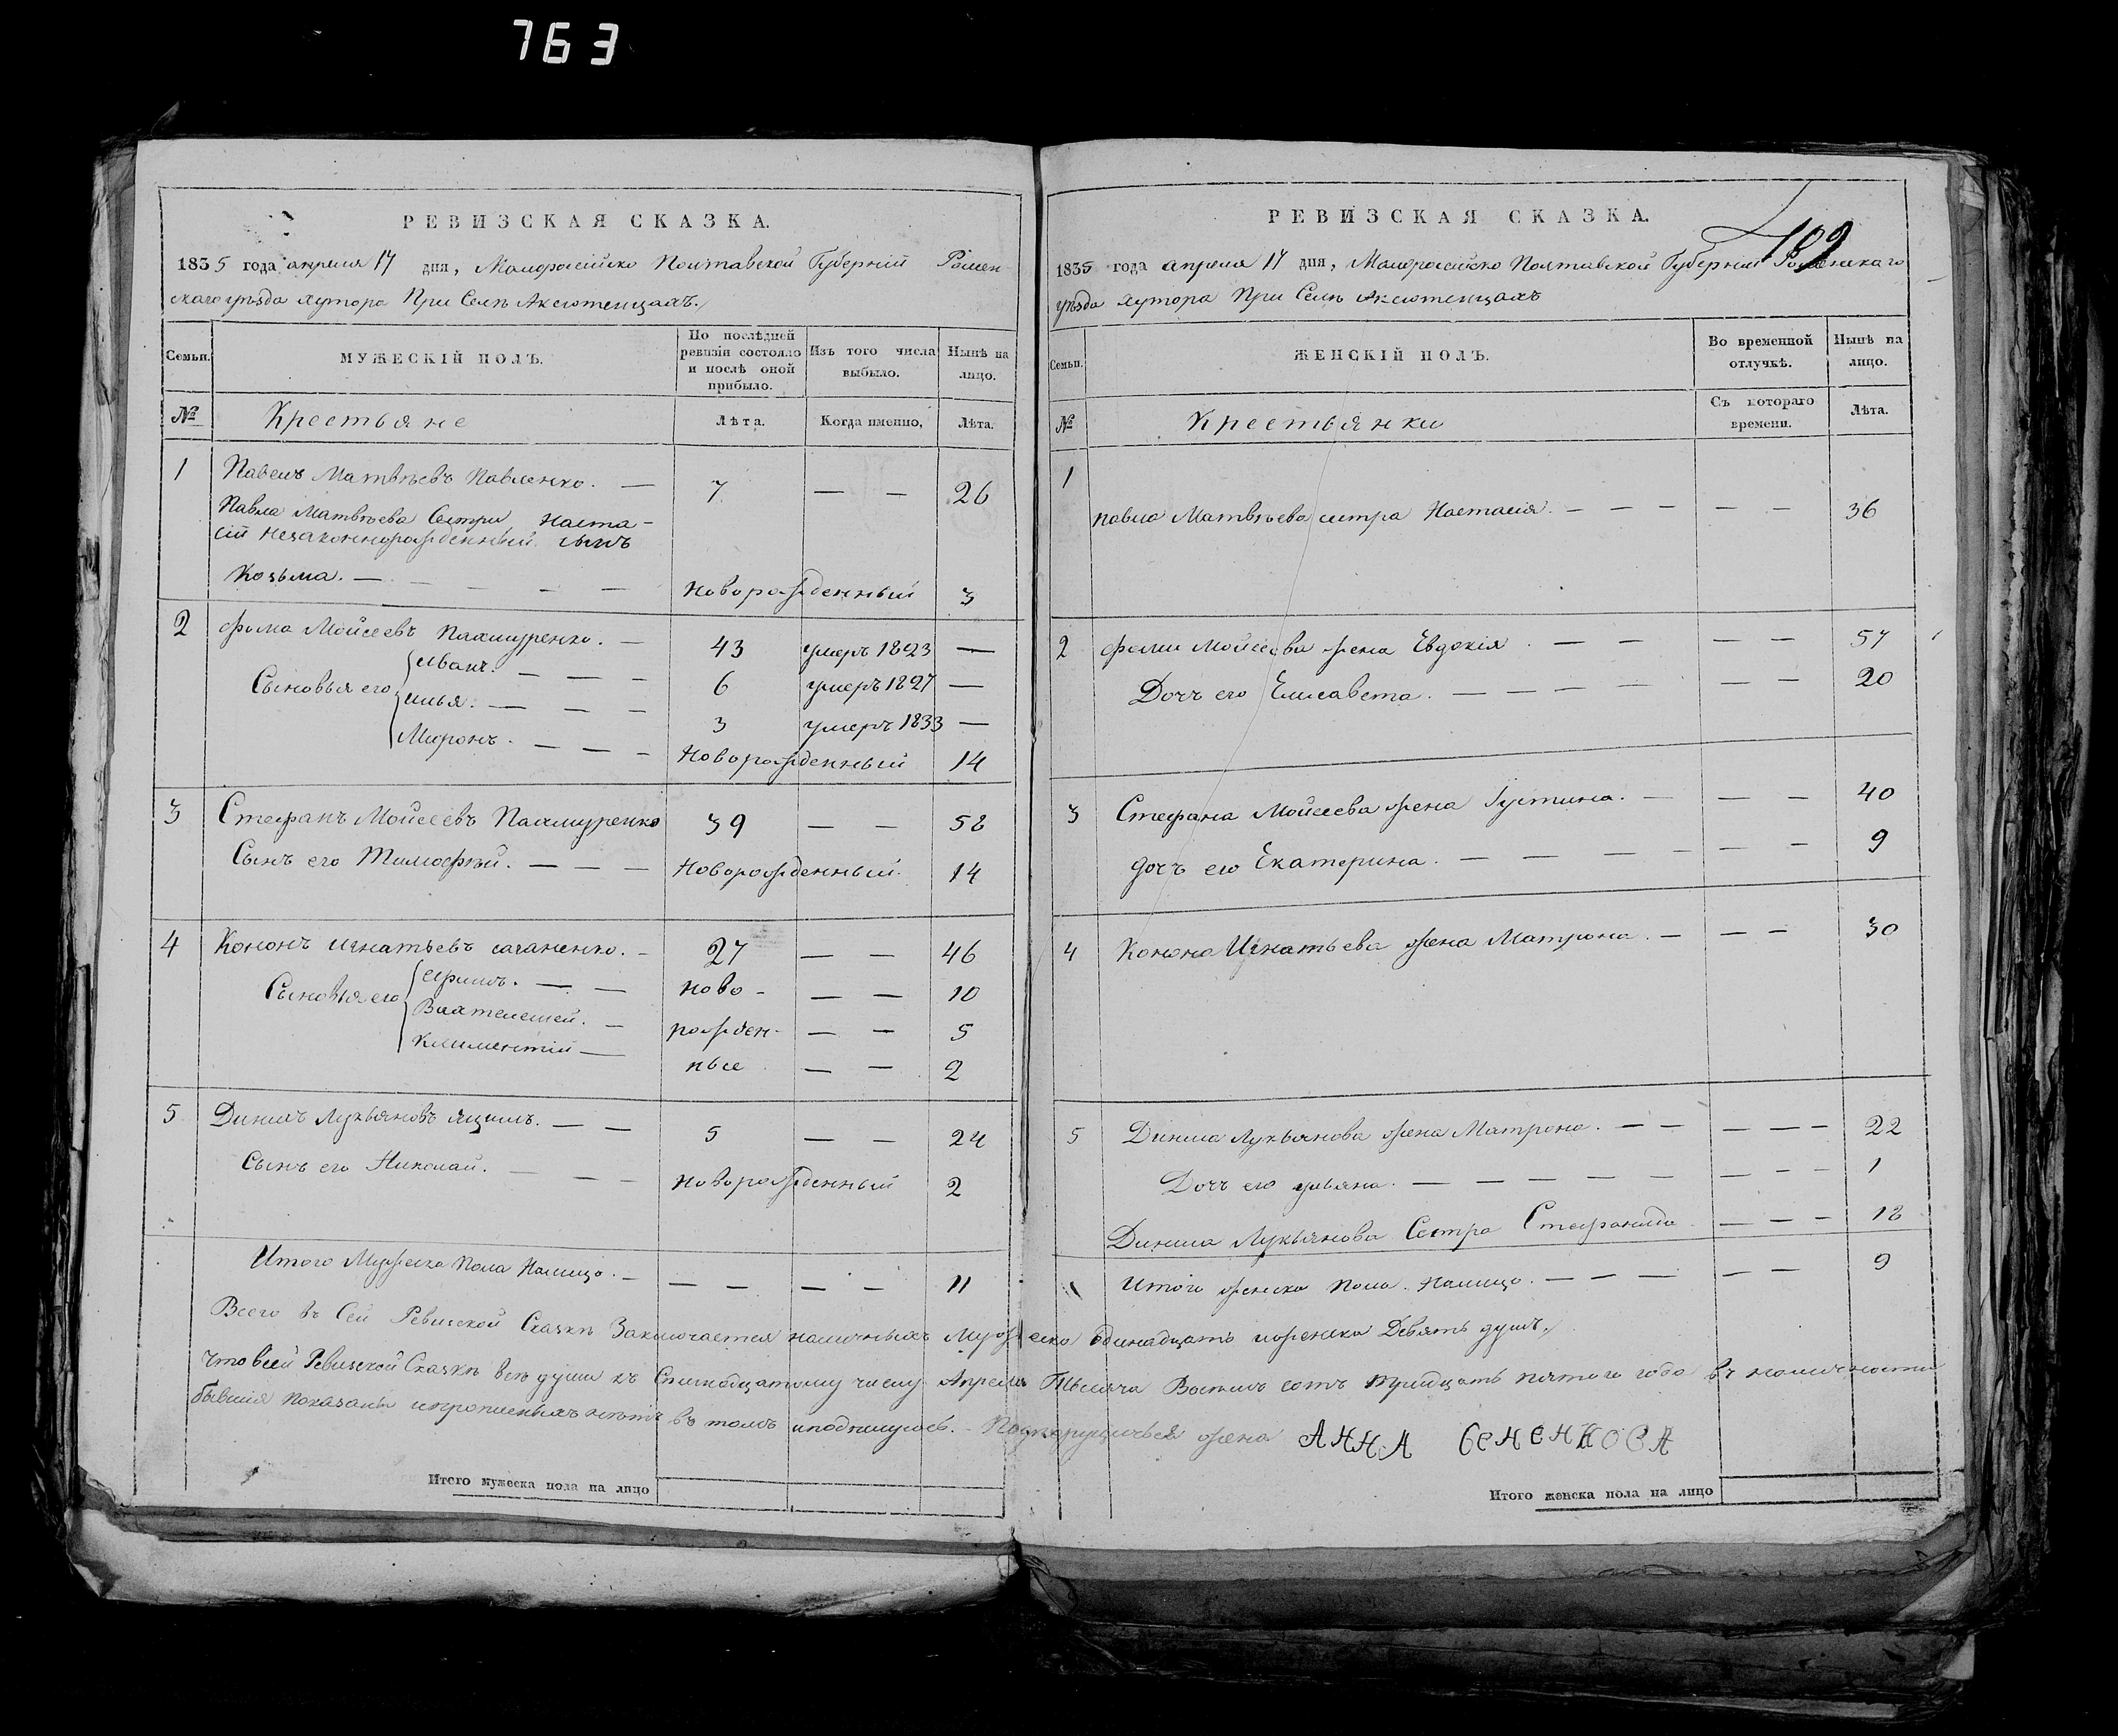 763
РЕВИЗСКАЯ СКАЗКА.
1835 года апреля 17 дня, Малоросийско Полтавской Губерній Ромен-
скаго уѣзда хутора При Селѣ Аксютенцахъ.
Семьи.
МУЖЕСКІЙ ПОЛЪ.
По послѣдней ревизіи состояло и послѣ оной прибыло.
Изъ того числа выбыло.
Нынѣ на лицо.
№ Крестьяне Лѣта. Когда именно, Лѣта.
1 Павелъ Матвѣевъ Павленко. — 7 — — 26
Павла Матвѣева Сестри Наста-
сіи незаконнорожденный сынъ
Козьма. — — — — Новорожденный 3
2 Фома Мойсеевъ Пахмуренко. — 43 умеръ 1823 —
Сыновья его Иванъ. — — — 6 умеръ 1827 —
Илья. — — — 3 умеръ 1833 —
Миронъ. — — — Новорожденный 14
3 Стефанъ Мойсеевъ Пахмуренко 39 — — 58
Сынъ его Тимофѣй. — — — Новорожденный. 14
4 Кононъ Игнатьевъ — 27 — — 46
Сыновья его — — ново- — — 10
— рожден- — — 5
Климентій — ные — — 2
5 Данилъ Лукьяновъ — — 5 — — 24
Сынъ его Николай. — — — Новорожденный 2
Итого Мужеска Пола Налицо. — — — — — 11
РЕВИЗСКАЯ СКАЗКА.
189
1835 года апреля 17 дня, Малоросийско Полтавской Губерніи Роменскаго
уѣзда Хутора При Селѣ Аксютенцахъ
Семьи.
ЖЕНСКІЙ ПОЛЪ.
Во временной отлучкѣ.
Нынѣ на лицо.
№ Крестьянки Съ котораго времени. Лѣта.
1 Павла Матвѣева сестра Настасія. — — — — — 36
2 Фоми Мойсеева жена Евдокія. — — — — 57
Дочъ его Елисавета. — — — — — — 20
3 Стефана Мойсеева жена Густина. — — — 40
дочъ его Екатерина. — — — — — — 9
4 Конона Игнатьева жена Матрона. — — — 30
5 Данила Лукьянова жена Матрона. — — — — — 22
Дочъ его ульяна. — — — — — — — — — 1
Данила Лукьянова Сестра Стефанида — — — 18
Итого женска Пола. Налицо. — — — — — 9
Всего въ Сей Ревизской Сказкѣ Заключается наличныхъ Мужеска Одинадцать иженска Девять душъ.
Что всей Ревизской Сказкѣ всѣ души къ Семнадцатому числу Апреля Тысяча Восемь сотъ тридцать пятого года въ наличности
бывшія показаны ипрописныхъ нѣтъ въ томъ иподпишуюсь. — Подпоручичья жена АННА СЕНЕНКОВА
Итого мужеска пола на лицо
Итого женска пола на лицо